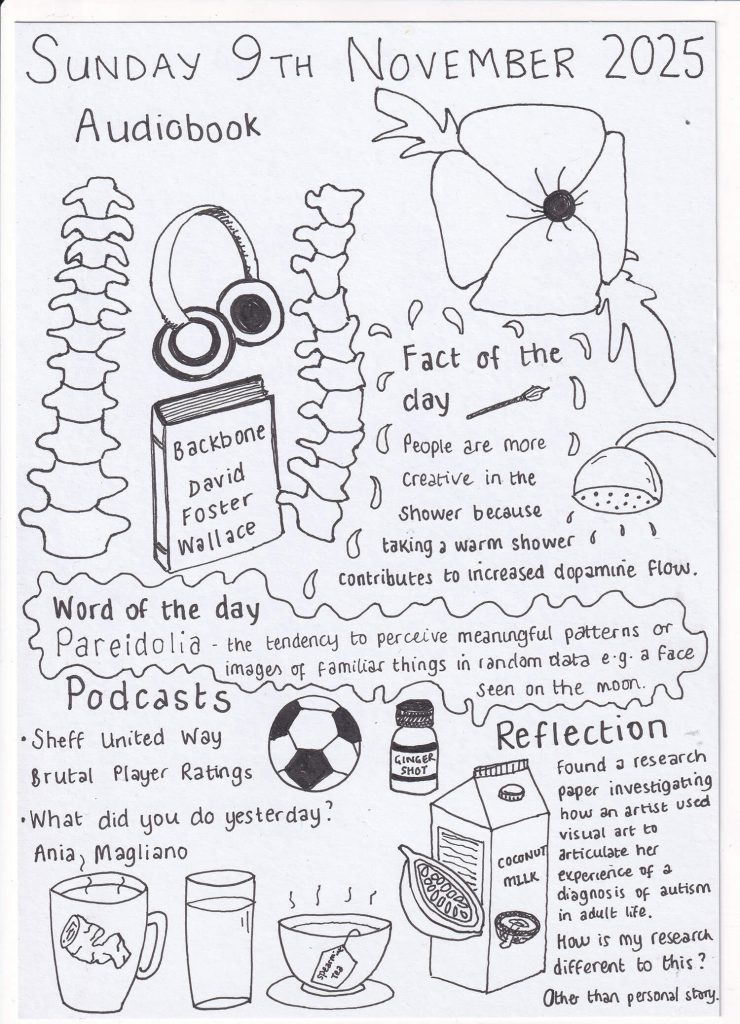 SUNDAY 9TH NOVEMBER 2025
Audiobook
Backbone
David
Foster
Wallace
Fact of the
day
People are more
creative in the
shower because
taking a warm shower
contributes to increased dopamine flow.
Word of the day
Pareidolia - the tendency to perceive meaningful patterns or
images of familiar things in random data e.g. a face
seen on the moon.
Podcasts
• Sheff United Way
Brutal Player Ratings
• What did you do yesterday?
Ania Magliano
GINGER
SHOT
Reflection
Found a research
paper investigating
how an artist used
visual art to
articulate her
experience of a
diagnosis of autism
in adult life.
How is my research
different to this?
Other than personal story.
COCONUT
MILK
Spearmint
Tea